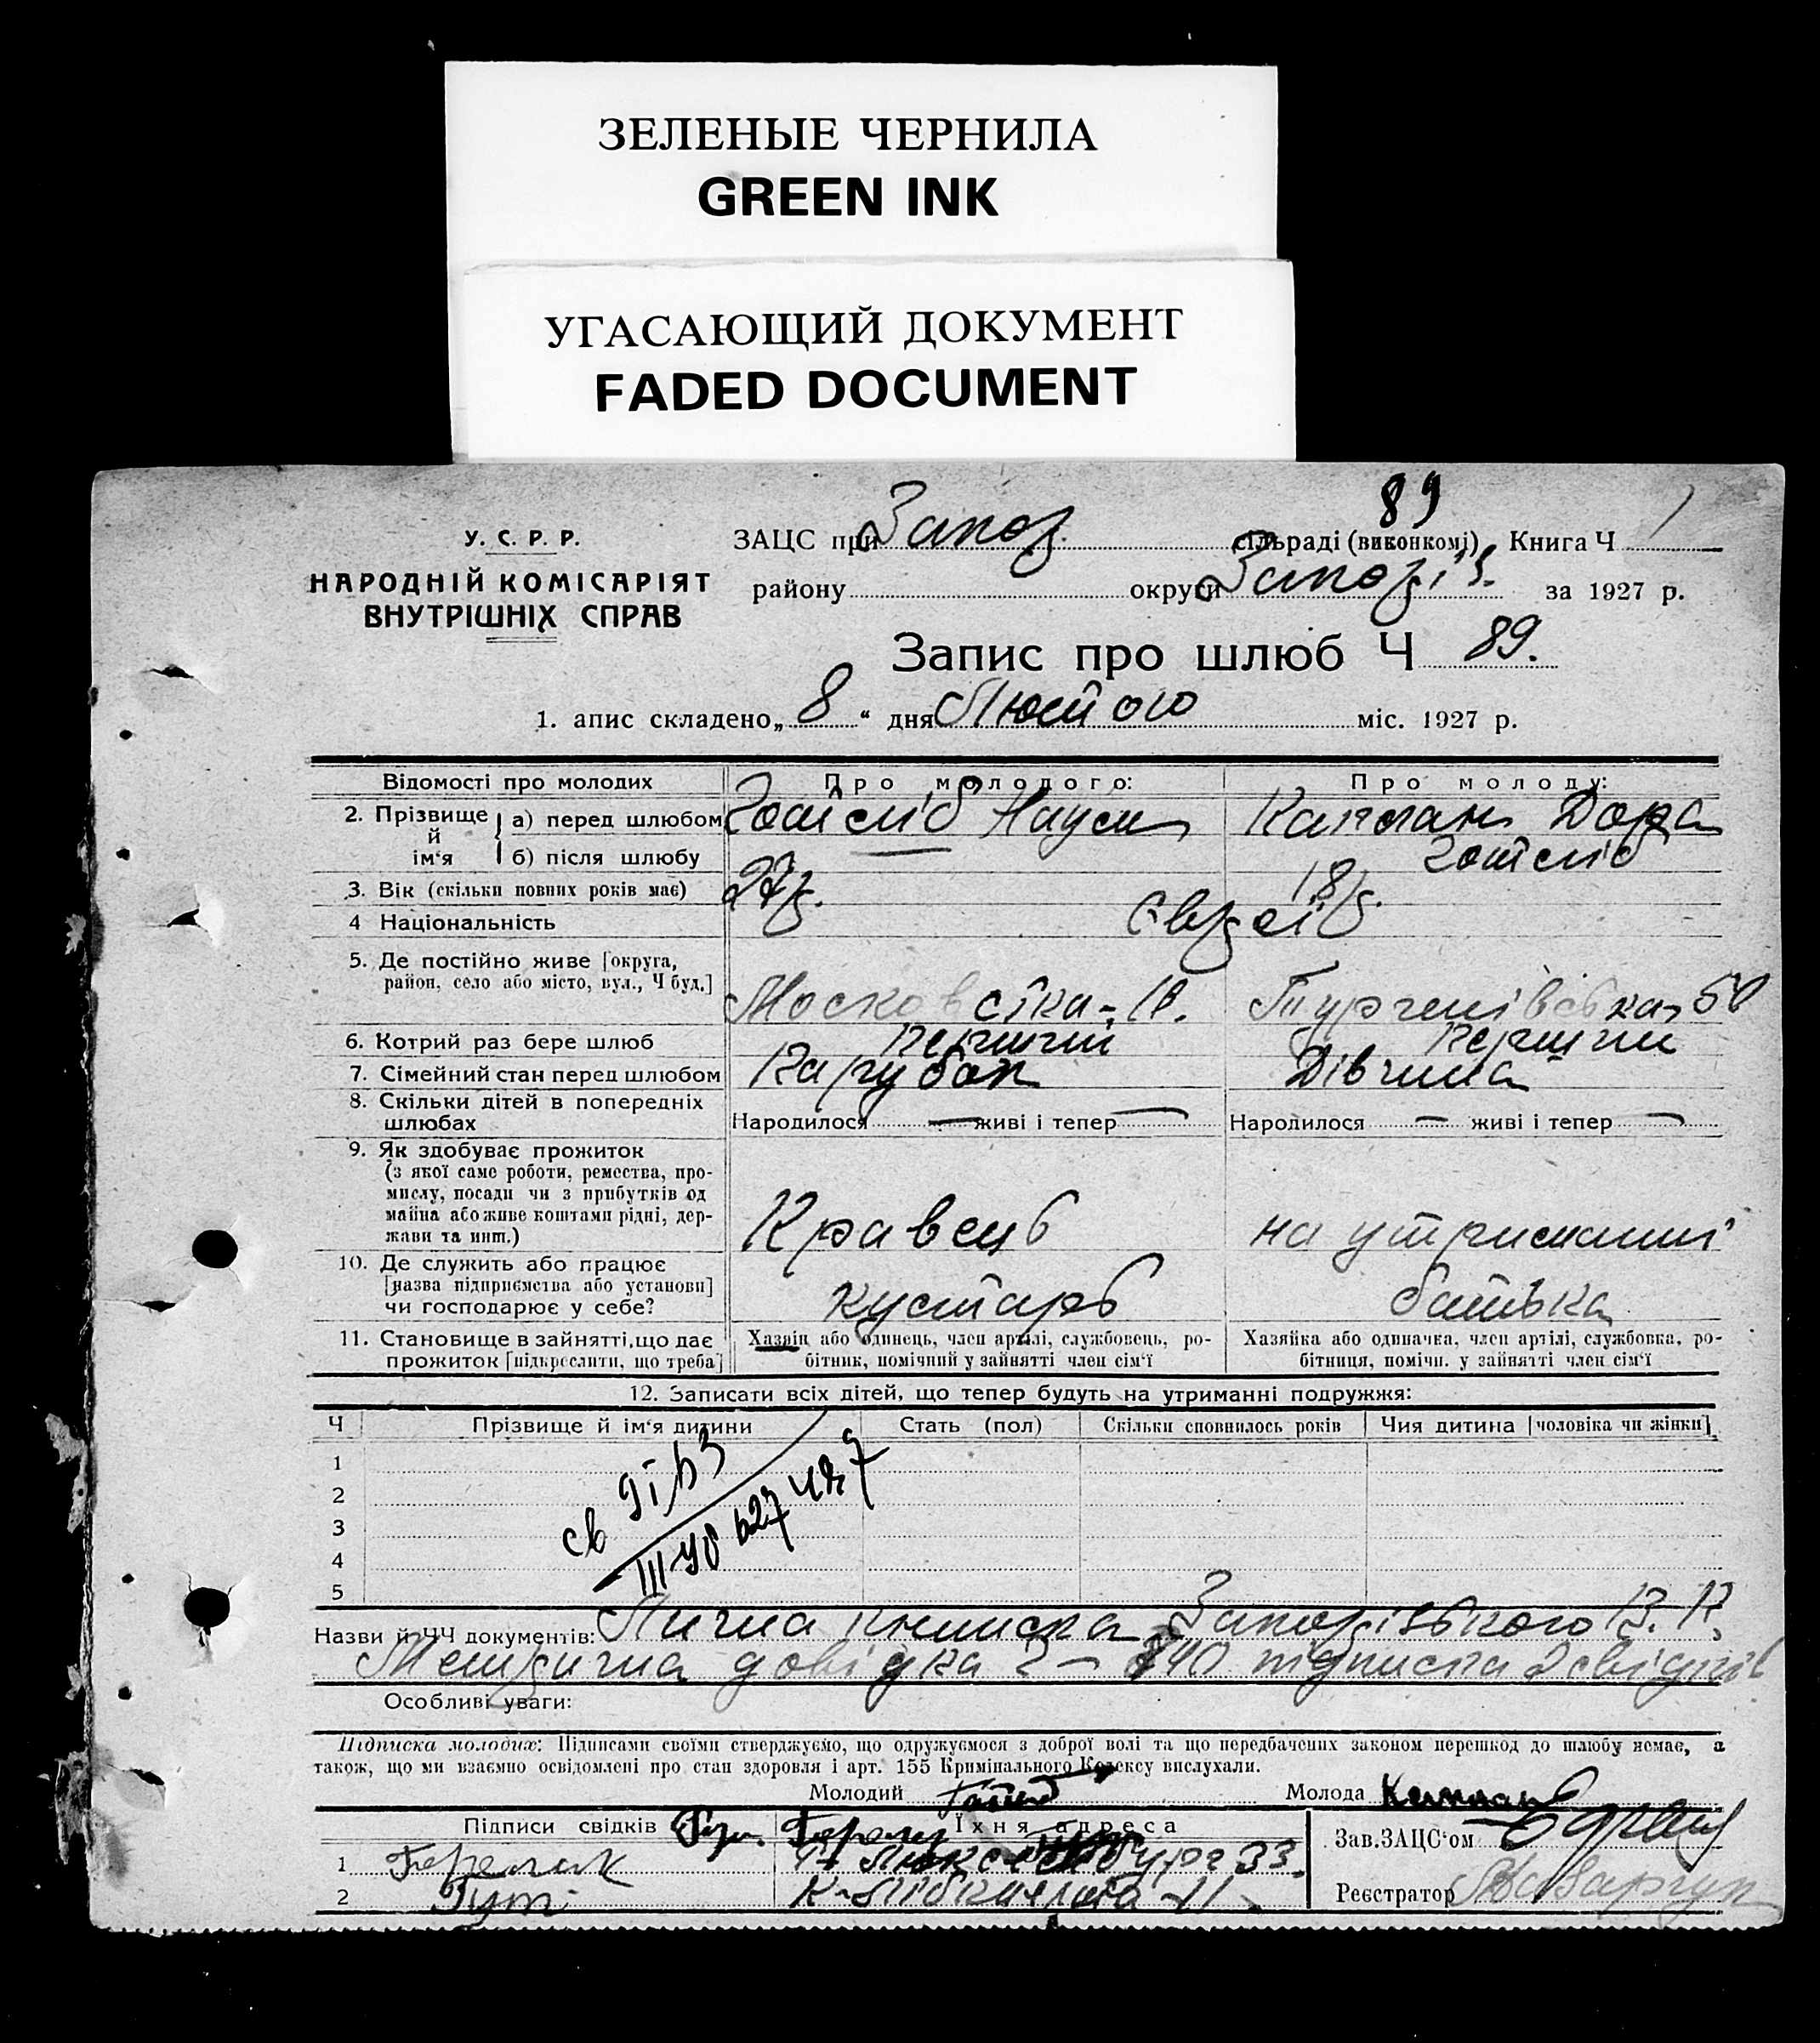 ЗЕЛЕНЫЕ ЧЕРНИЛА
GREEN INK
УГАСАЮЩИЙ ДОКУМЕНТ
FADED DOCUMENT
89
У. С. Р. Р.
НАРОДНІЙ КОМІСАРІЯТ
ВНУТРІШНІХ СПРАВ
ЗАЦС при Запор. сільраді (виконкомі) Книга Ч 1
району округи Запоріз. за 1927 р.
Запис про шлюб Ч 89.
1. апис складено „8“ дня Лютого міс. 1927 р.
Відомості про молодих Про молодого: Про молоду:
2. Прізвище й ім‘я а) перед шлюбом Готліб Наум Каплан Дора
б) після шлюбу Готліб
3. Вік (скільки повних років має) 27 р. 18 р.
4 Національність Євреї
5. Де постійно живе [округа,
район, село або місто, вул., Ч буд.] Московська Тургенівська, 50
6. Котрий раз бере шлюб перший перший
7. Сімейний стан перед шлюбом Парубок Дівчина
8. Скільки дітей в попередніх
шлюбах Народилося — живі і тепер — Народилося — живі і тепер —
9. Як здобуває прожиток
(з якої саме роботи, ремества, про-
мислу, посади чи з прибутків од
майна або живе коштами рідні, дер-
жави та инш.) Кравець на утриманні
10. Де служить або працює
[назва підприємства або установи]
чи господарює у себе? кустарь батька
11. Становище в зайнятті, що дає
прожиток [підкреслити, що треба]
Хазяїн або одинець, член артілі, службовець, ро-
бітник, помічний у зайнятті член сім‘ї
Хазяйка або одиначка, член артілі, службовка, ро-
бітниця, помічн. у зайнятті член сім‘ї
12. Записати всіх дітей, що тепер будуть на утриманні подружжя:
Ч Прізвище й ім‘я дитини Стать (пол) Скільки сповнилось років Чия дитина [чоловіка чи жінки]
1
2
3
4
5
св
Назви й ЧЧ документів: Лична книжка Запорізького
довідка підписка 2 свідків
Особливі уваги:
Підписка молодих: Підписами своїми стверджуємо, що одружуємося з доброї волі та що передбачених законом перешкод до шлюбу немає, а
також, що ми взаємно освідомлені про стан здоровля і арт. 155 Кримінального Кодексу вислухали.
Молодий Молода Каплан
Підписи свідків Їхня адреса
Зав.ЗАЦС‘ом
1 33.
2 К-Лібкнехта 11
Реєстратор